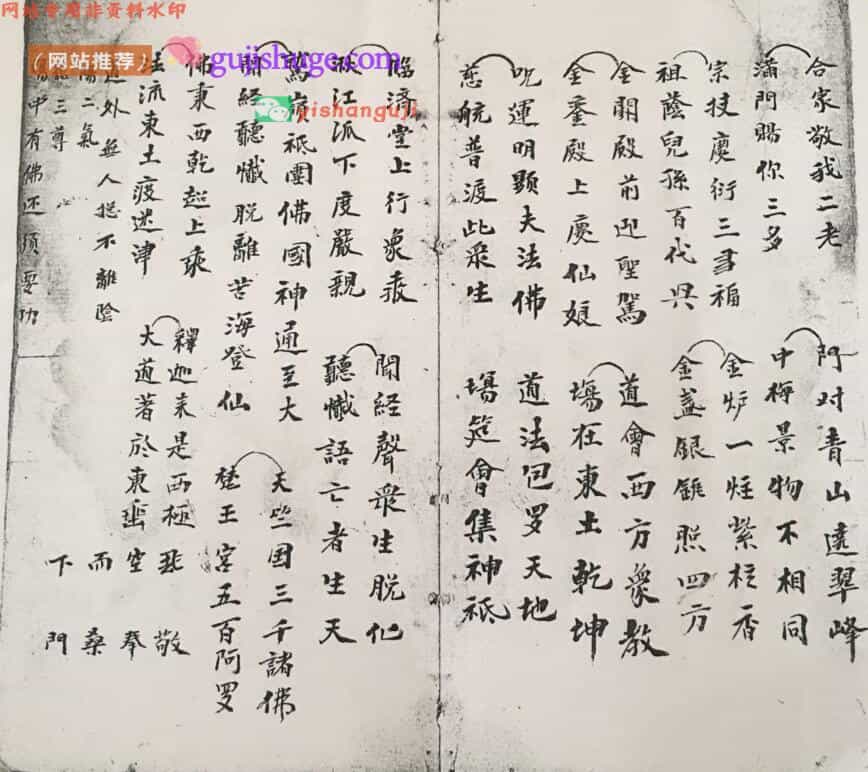 网站专用非资料水印
(网站推荐)
gujishuge.com
yishanguji
合家敬我二老
滿門賜你三多
宗技慶衍三多福
祖蔭兒孫百代兴
金闕殿前迎聖駕
金銮殿上慶仙娘
咒運明顯夫法佛
慈航普渡此眾生
門对青山遠翠峰
中梅景物不相同
金炉一炷紫檀香
金盞銀照四方
道會西方衆教
塲在東土乾坤
道法包罗天地
塲筵會集神祇
臨濟堂上行衆乘
江派下度嚴親
鷲嶺祇園佛國神通至大
開經聽懺脱離苦海登仙
佛東西乾超上乘
流東土度迷津
道外無人揔不離陰
陽二氣
三尊
中有佛还須要功
聞經聲衆生脱化
聽懺語亡者生天
天竺国三千諸佛
梵王宮五百阿罗
釋迦来是西極
大道著於東
敬
空奉
而桑
下門